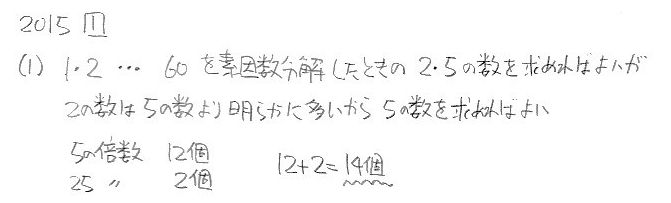 2015 1
(1) 1・2 … 60 を素因数分解したときの 2・5の数を求めればよいが
2の数は5の数より明らかに多いから 5の数を求めればよい
5の倍数 12個
25 〃 2個 12+2=14個